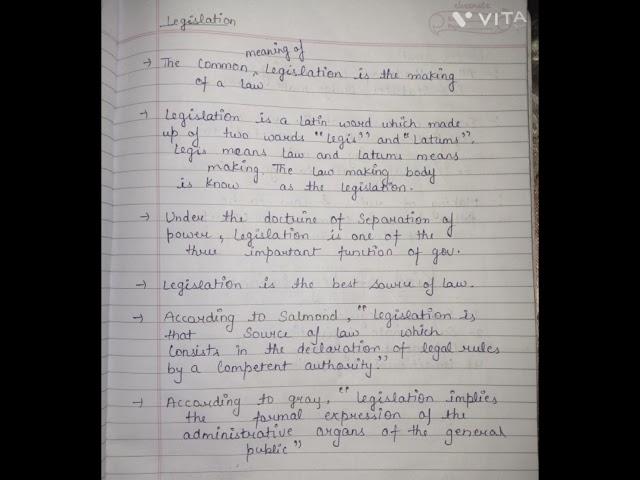 VITA
Legislation
meaning of
→ The common ^ Legislation is the making
of a law
→ Legislation is a latin word which made
up of two words "Legis" and "Latums".
Legis means law and latums means
making. The law making body
is know as the legislation.
→ Under the doctrine of Separation of
power, Legislation is one of the
three important function of gov.
→ Legislation is the best source of law.
→ According to Salmond, "Legislation is
that source of law which
consists in the declaration of legal rules
by a competent authority."
→ According to gray, "Legislation implies
the formal expression of the
administrative organs of the general
public"